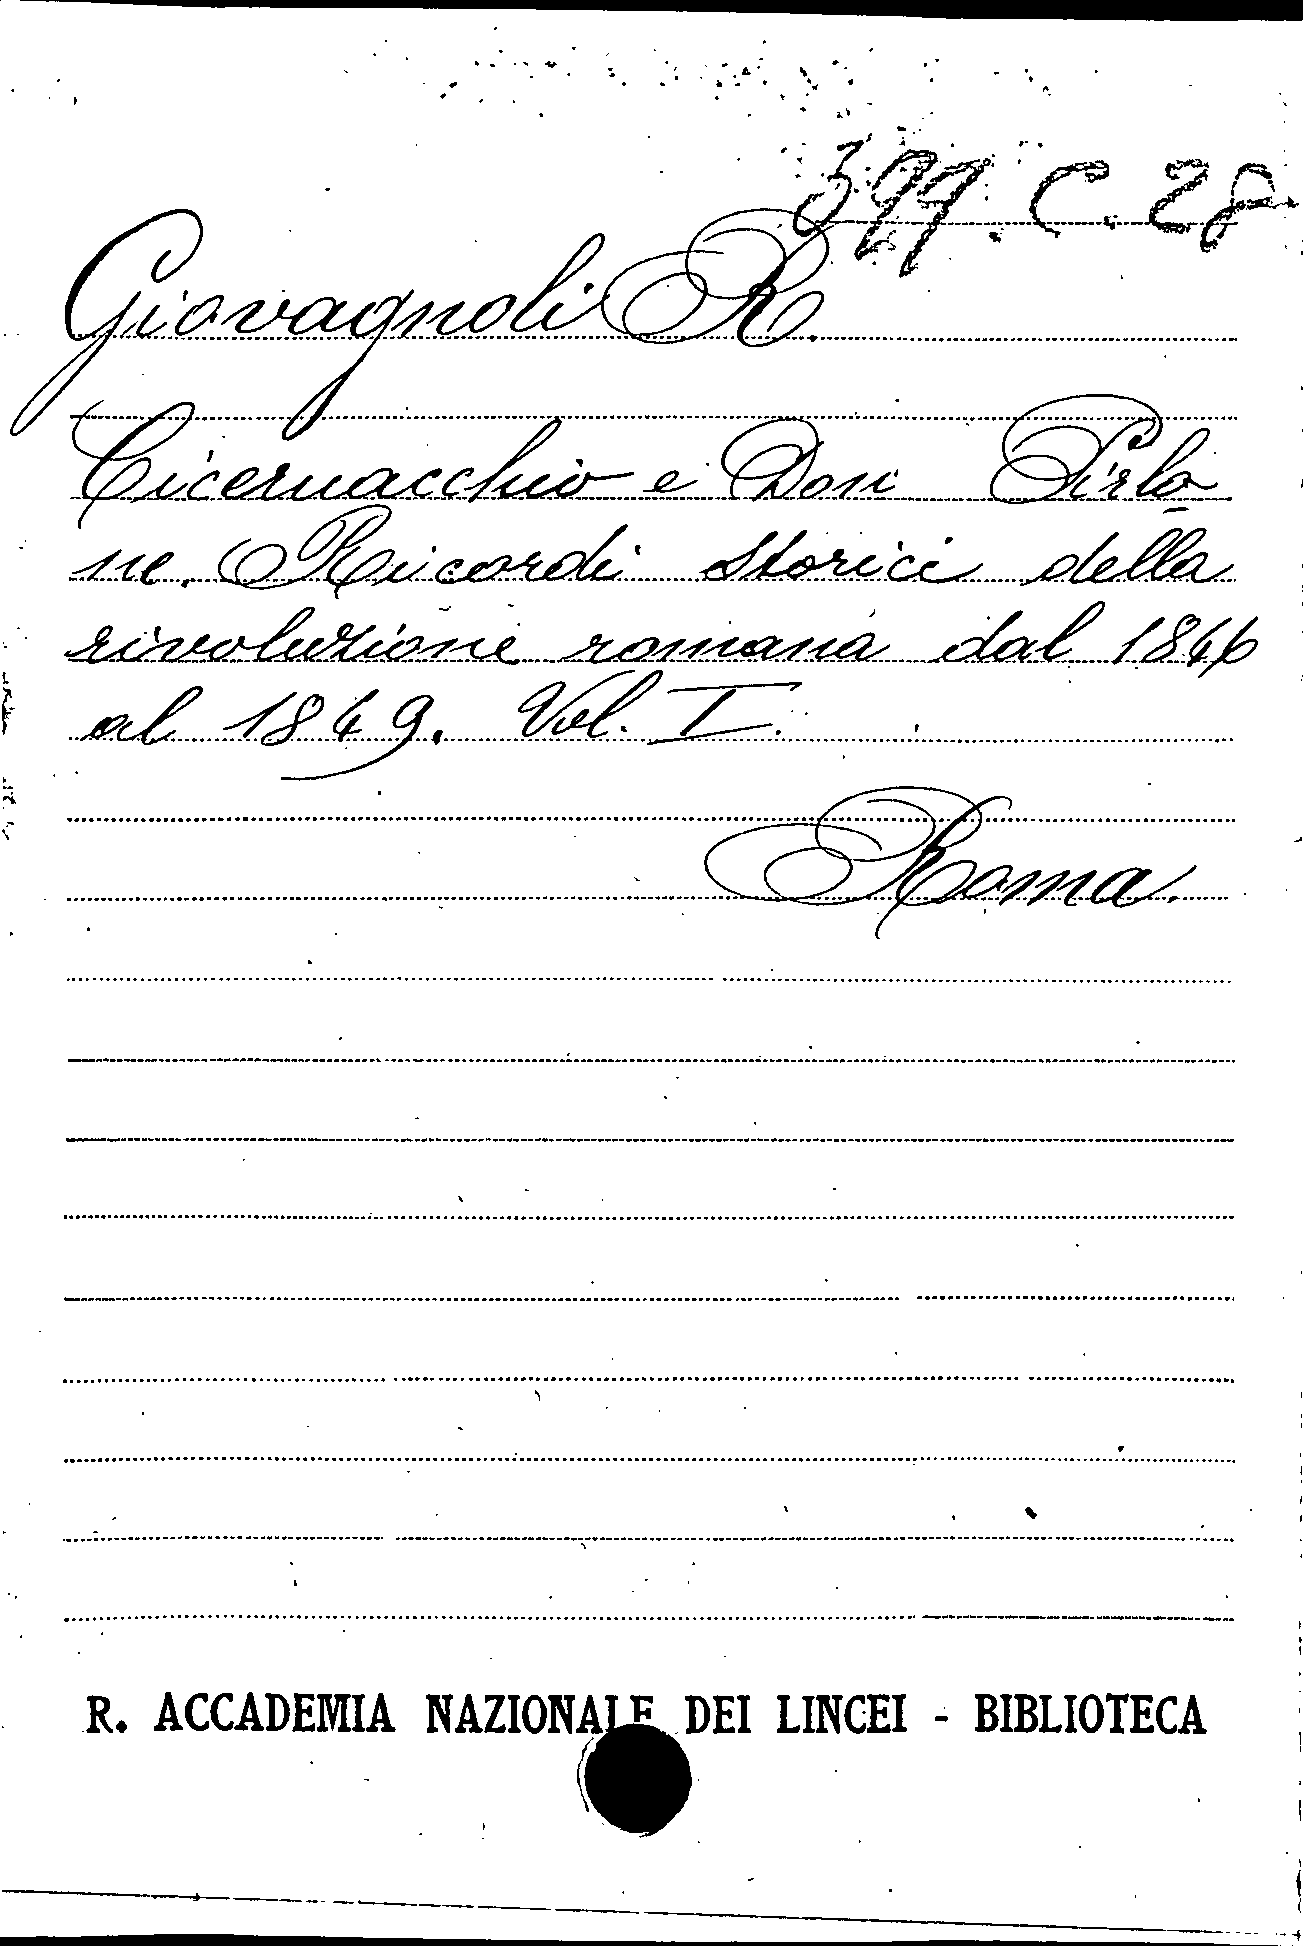 399. C. 28
Giovagnoli R.
Ciceruacchio e Don Pirlo
ne. Ricordi storici della
rivoluzione romana dal 1846
al 1849. Vol. I.
Roma.
R. ACCADEMIA NAZIONALE DEI LINCEI - BIBLIOTECA